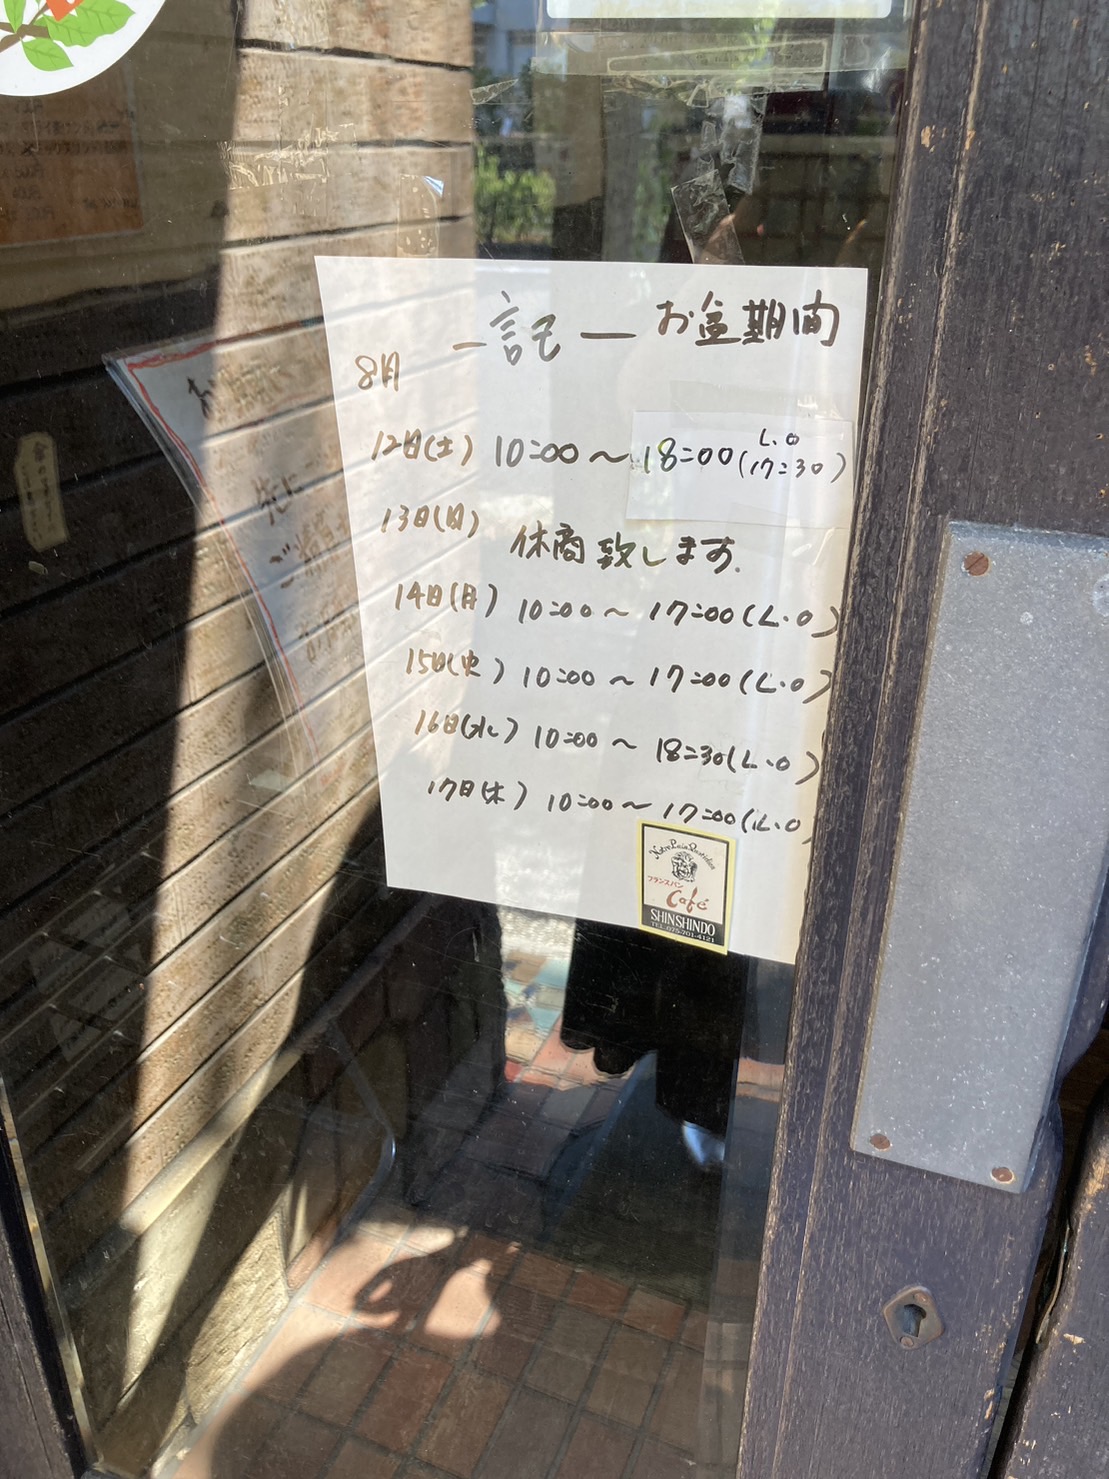 ー記ー お盆期間
8月
12日(土) 10:00〜18:00(17:30)
L.O
13日(日) 休商致します.
14日(月) 10:00〜17:00(L.O)
15日(火) 10:00〜17:00(L.O)
16日(水) 10:00〜18:30(L.O)
17日(木) 10:00〜17:00(L.O)
Notre Pain Quotidien
フランスパン
Café
SHINSHINDO
TEL 075-701-4121